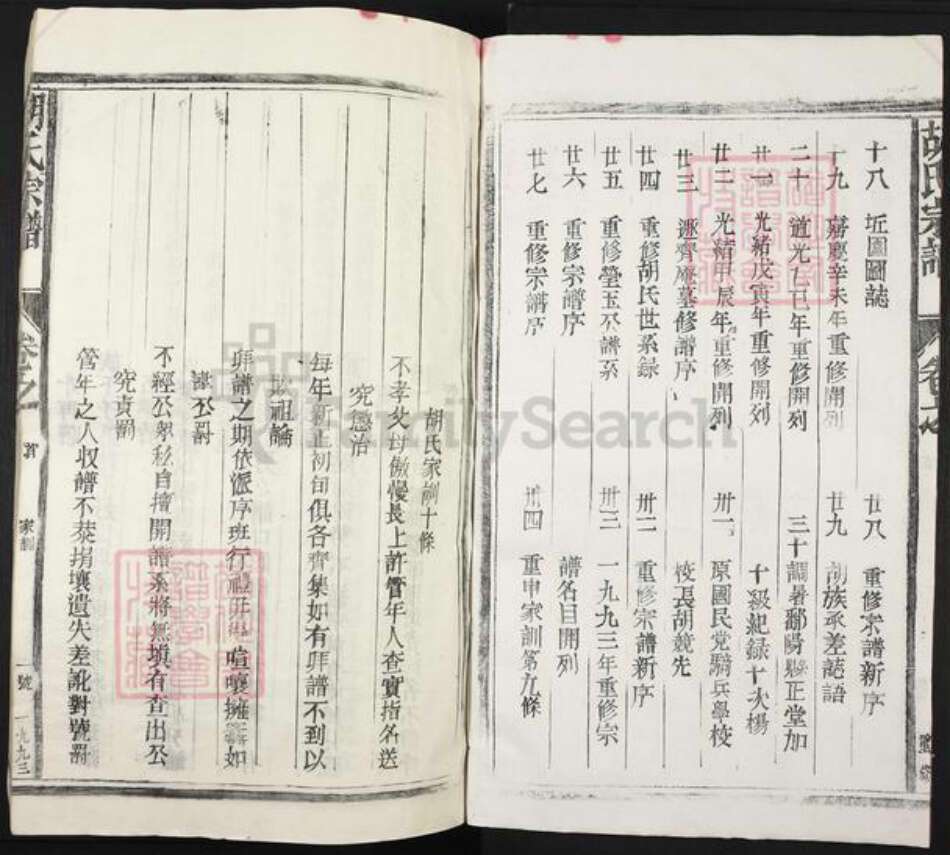 胡氏宗譜
十八 坵圖圖誌
十九 嘉慶辛未年重修開列
二十 道光乙巳年重修開列
廿一 光緒戊寅年重修開列
廿二 光緒甲辰年重修開列
廿三 遜齊廢墓修譜序
廿四 重修胡氏世系錄
廿五 重修瑩玉公譜系
廿六 重修宗譜序
廿七 重修宗譜序
廿八 重修宗譜新序
廿九 胡族承差誌語
三十 調署鄱陽縣正堂加
十級紀錄十次楊
卅一 原國民党騎兵學校
校長胡競先
卅二 重修宗譜新序
卅三 一九九三年重修宗
譜名目開列
卅四 重申家訓第九條
胡氏家訓十條
不孝父母傲慢長上許管年人查實指名送
究懲治
每年新正初旬俱各齊集如有拜譜不到以
欺祖論
拜譜之期依派序班行禮毋得喧嚷擁 如
違公罰
不經公眾私自擅開譜系將無填有查出公
究責罰
管年之人收譜不恭捐壞遺失差訛對號罰
胡氏宗譜
卷之
首
家訓
一號
一九九三
FamilySearch